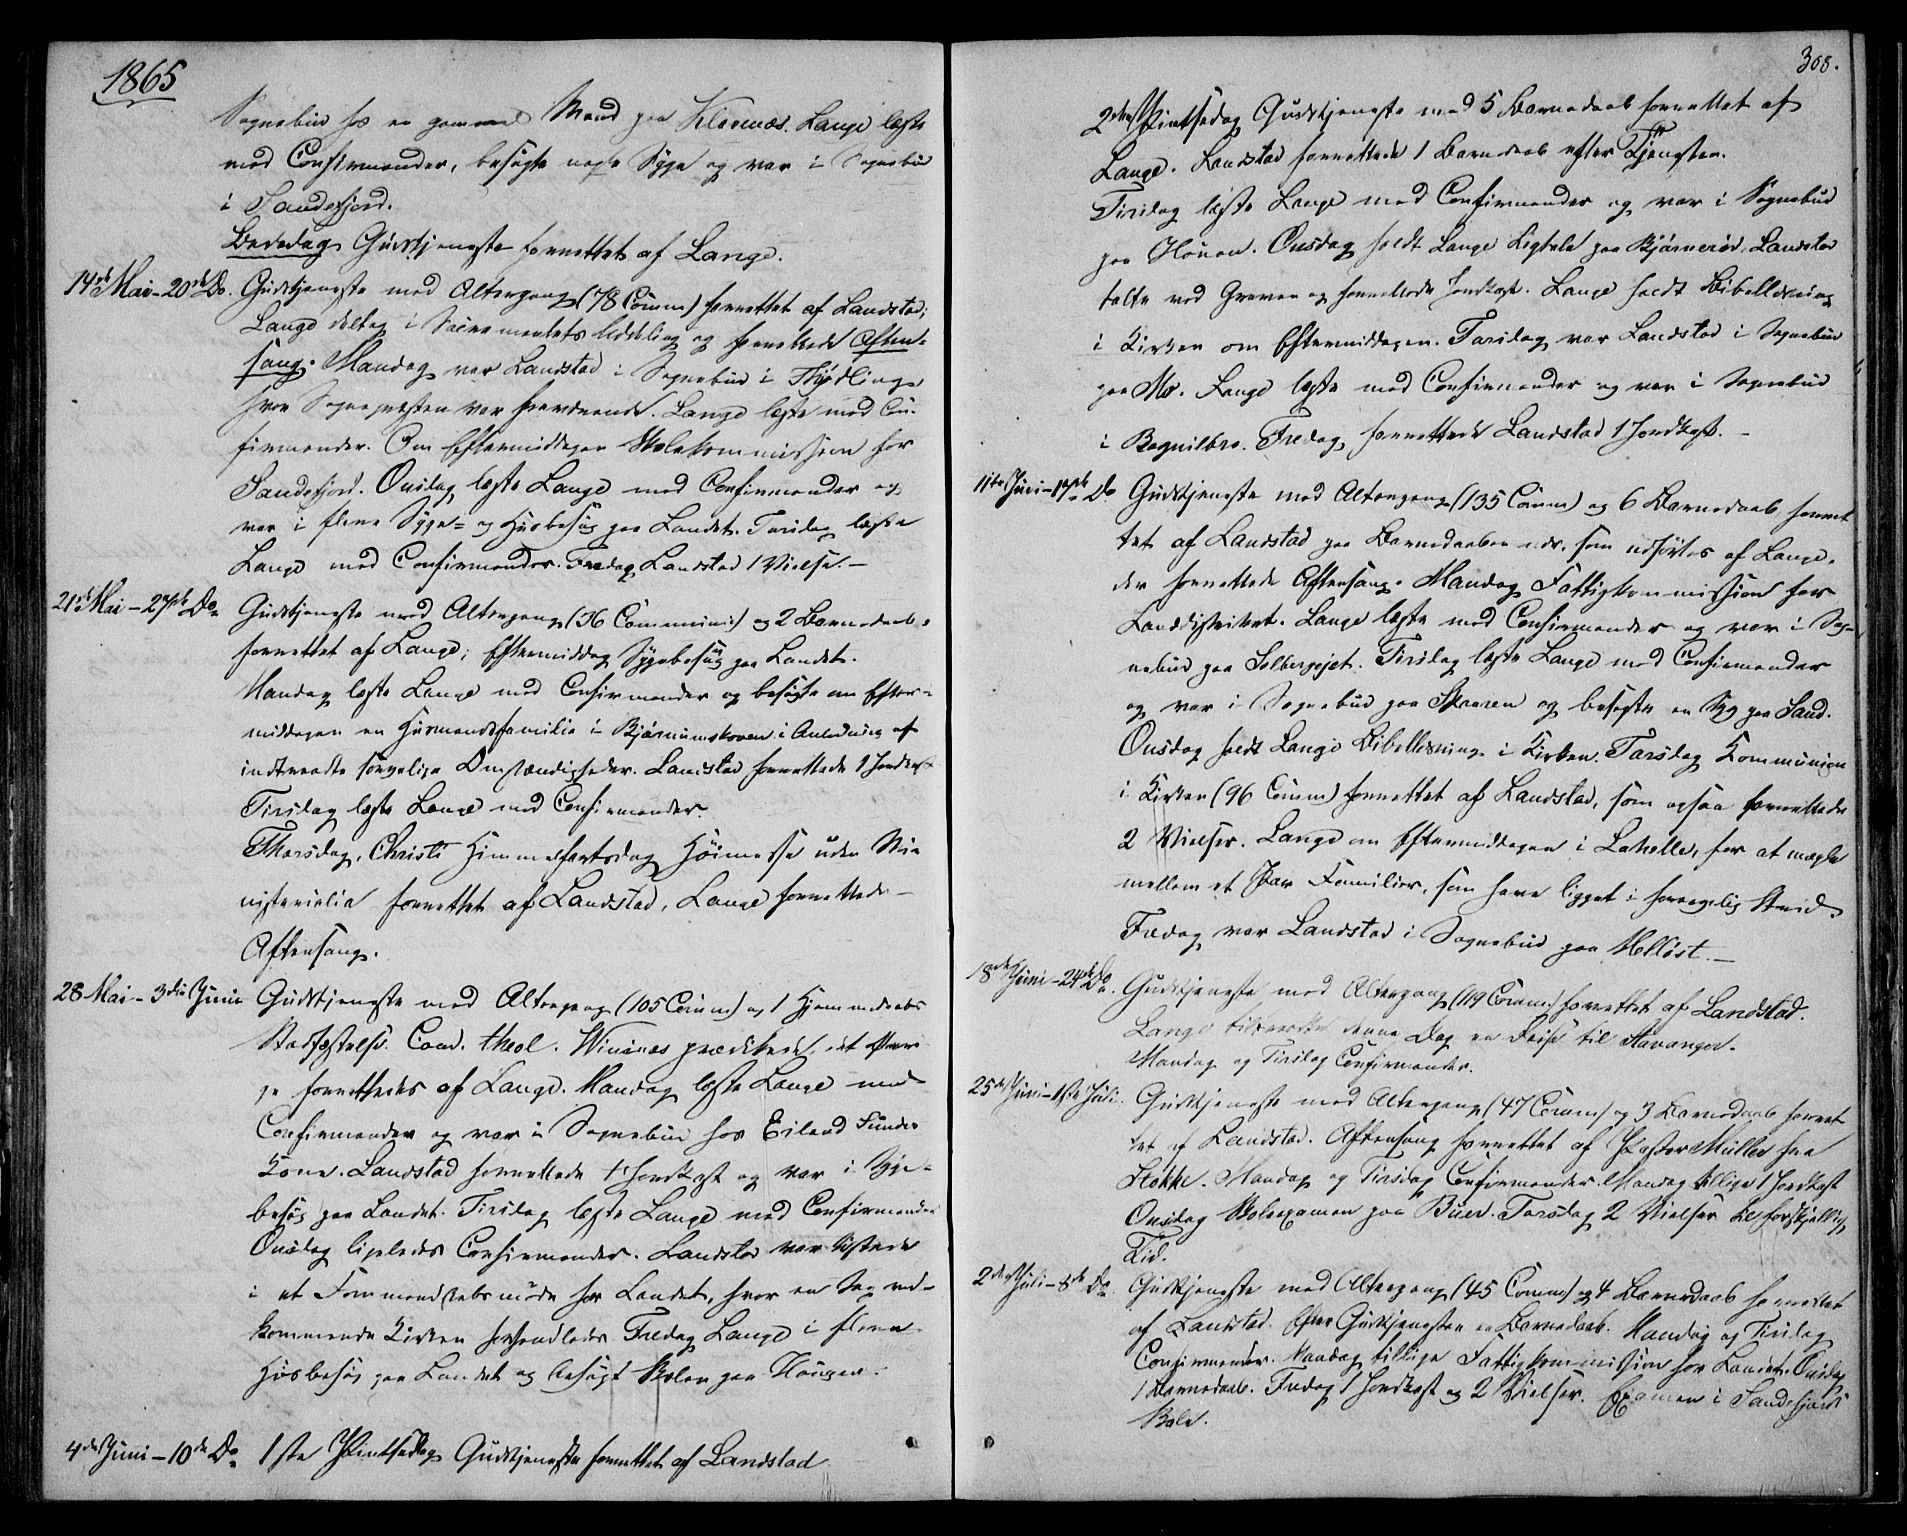 1865
Sognebud hos en gammel Mand paa Klavenæs. Lange læste
med Confirmander, besøgte nogle Syge og var i Sognebud
i Sandefjord.
Bededag Gudstjeneste forrettet af Lange.
14de Mai – 20de Do. Gudstjeneste med Altergang (78 Comm) forrettet af Landstad;
Lange deltog i Sacramentets Uddeling og forrettede Aften-
sang. Mandag var Landstad i Sognebud i Thjødling
hvor Sognepræsten var fraværende. Lange læste med Con-
firmander. Om Eftermiddagen Skolekommission for
Sandefjord. Onsdag læste Lange med Confirmander og
var i flere Syge- og Husbesøg paa Landet. Torsdag læste
Lange med Confirmander. Fredag Landstad 1 Vielse. –
21de Mai – 27de Do. Gudstjeneste med Altergang (36 Communi:) og 2 Barnedaab,
forrettet af Lange; Eftermiddag Sygebesøg paa Landet.
Mandag læste Lange med Confirmander og besøgte om Efter-
middagen en Husmandsfamilie i Bjørnumskoven i Anledning af
indtraadte sørgelige Omstændigheder. Landstad forrettede 1 Jordkast
Tirsdag læste Lange med Confirmander.
Thorsdag, Christi Himmelfartsdag Høimesse uden Mi-
nisterialia forrettet af Landstad, Lange forrettede
Aftensang.
28 Mai – 3die Juni Gudstjeneste med Altergang (105 Comm) og 1 Hjemmedaabs
Stadfæstelse. Cand. theol. Winsnes prædikede, det Øvri-
ge forrettedes af Lange. Mandag læste Lange med
Confirmander og var i Sognebud hos Eiland Sundes
Kone. Landstad forrettede 1 Jordkast og var i Syge-
besøg paa Landet. Tirsdag læste Lange med Confirmander
Onsdag ligeledes Confirmander. Landstad var tilstede
i et Formandskabsmøde for Landet, hvor en Sag ved-
kommende Kirken forhandledes. Fredag Lange i flere
Husbesøg paa Landet og besøgt Skolen paa Haugen.
4de Juni – 10de Do 1ste Pintsedag Gudstjeneste forrettet af Landstad
308.
2den Pintsedag Gudstjeneste med 5 Barnedaab forrettet af
Lange. Landstad forrettede 1 Barnedaab efter Tjenesten.
Tirsdag læste Lange med Confirmander og var i Sognebud
paa Houen. Onsdag holdt Lange Ligtale paa Bjørnerød, Landstad
talte ved Graven og forrettede Jordkast. Lange holdt Bibellæsning
i Kirken om Eftermiddagen. Torsdag var Landstad i Sognebud
paa Mo. Lange læste med Confirmander og var i Sognebud
i Boguilbro. Fredag forrettede Landstad 1 Jordkast. –
11te Juni – 17de Do Gudstjeneste med Altergang (135 Comm) og 6 Barnedaab, forret-
tet af Landstad paa Barnedaaben nær, som udførtes af Lange,
der forrettede Aftensang. Mandag Fattigkommission for
Landdistriktet. Lange læste med Confirmander og var i Sog-
nebud paa Solbergejet. Tirsdag læste Lange med Confirmander
og var i Sognebud paa Skraren og besøgte en Syg paa Sand.
Onsdag holdt Lange Bibellæsning i Kirken. Torsdag Kommunion
i Kirken (96 Comm) forrettet af Landstad, som ogsaa forrettede
2 Vielser. Lange om Eftermiddagen i Lahelle, for at mægle
mellem et Par Familier, som have ligget i forargelig Strid.
Fredag var Landstad i Sognebud paa Melløst. –
18de Juni – 24de Do. Gudstjeneste med Altergang (119 Comm) forrettet af Landstad.
Lange tiltraadte denne Dag en Reise til Stavanger.
Mandag og Tirsdag Confirmander.
25de Juni – 1ste Juli. Gudstjeneste med Altergang (47 Comm) og 3 Barnedaab forret
tet af Landstad. Aftensang forrettet af Pastor Müller fra
Stokke. Mandag og Tirsdag Confirmander. Mandag tillige 1 Jordkast
Onsdag Skoleexamen paa Buer. Torsdag 2 Vielser til forskjellig
Tid.
2den Juli – 8de Do. Gudstjeneste med Altergang (45 Comm) og 4 Barnedaab forrettet
af Landstad. Efter Gudstjenesten en Barnedaab. Mandag og Tirsdag
Confirmander. Mandag tillige Fattigkommission for Landet. Onsdag
1 Barnedaab. Fredag 1 Jordkast og 2 Vielser. Examen i Sandefjords
Skole.